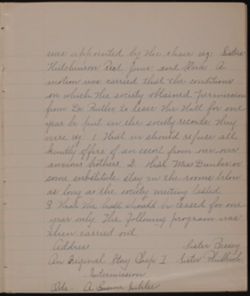 was appointed by the chair viz: Sisters
Hutchinson Red June and Howe A
motion was carried that the conditions
on which the society obtained permission
from Dr. Butler to lease the Hall for one
year be put in the society records. They
were viz. 1 That we should refuse all
kindly offers of an escort from our over
anxious brothers 2. that Mrs Dunbar or
some substitute stay in the rooms below
as long as the society meeting lasted.
3 That the hall should be leased for one
year only. The following program was
then carried out.
Address Sister
An Original Story Chap I Sister
Intermission
A Summer